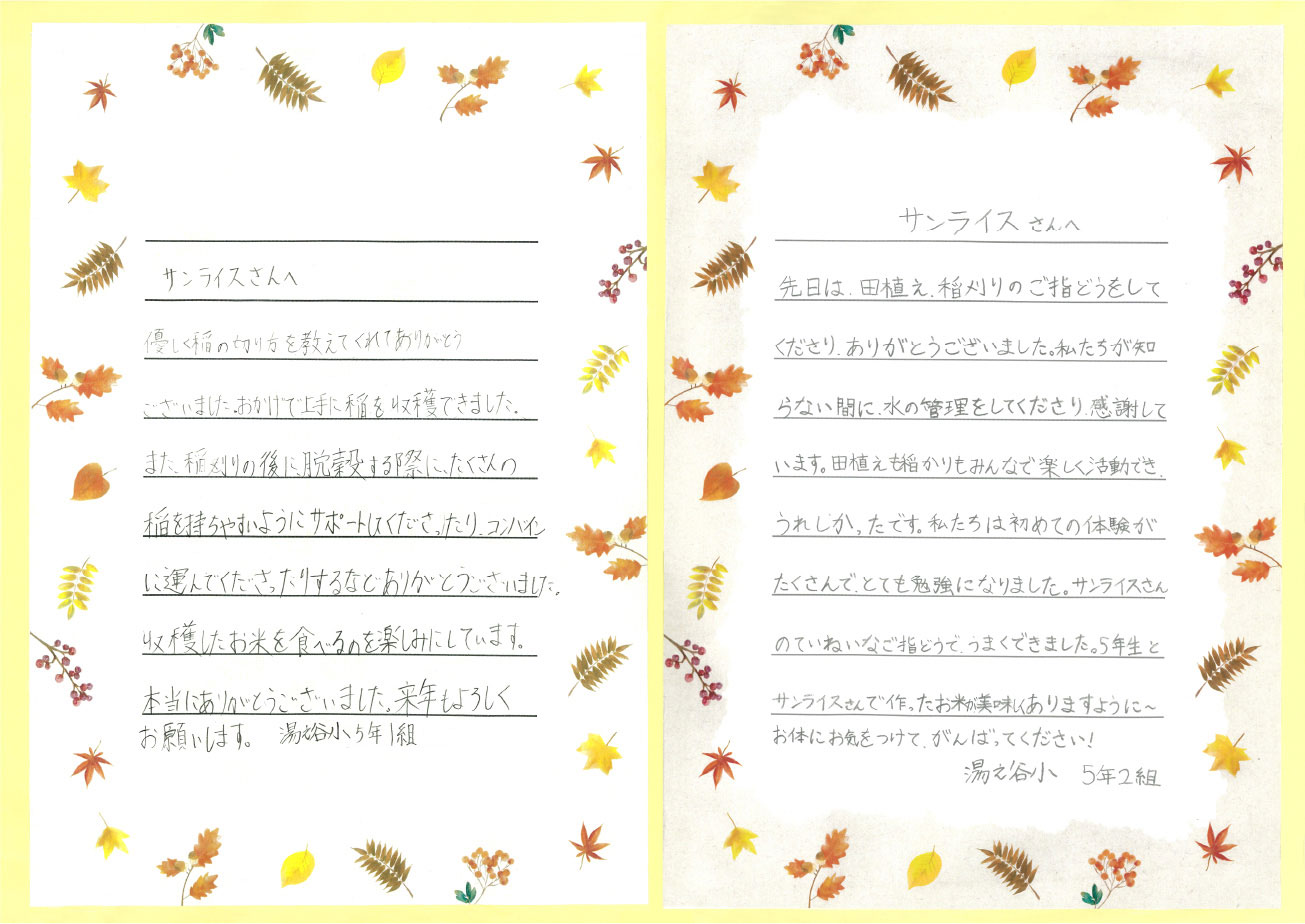 サンライスさんへ
優しく稲の切り方を教えてくれてありがとう
ございました。おかげで上手に稲を収穫できました。
また、稲刈りの後に、脱穀する際に、たくさんの
稲を持ちやすいようにサポートしてくださったり、コンバイン
に運んでくださったりするなどありがとうございました。
収穫したお米を食べるのを楽しみにしています。
本当にありがとうございました。来年もよろしく
お願いします。 湯之谷小5年1組
サンライスさんへ
先日は、田植え、稲刈りのご指どうをして
くださり、ありがとうございました。私たちが知
らない間に、水の管理をしてくださり、感謝して
います。田植えも稲かりもみんなで楽しく活動でき、
うれしかったです。私たちは初めての体験が
たくさんで、とても勉強になりました。サンライスさん
のていねいなご指どうで、うまくできました。5年生と
サンライスさんで作ったお米が美味しくありますように〜
お体にお気をつけて、がんばってください!
湯之谷小 5年2組